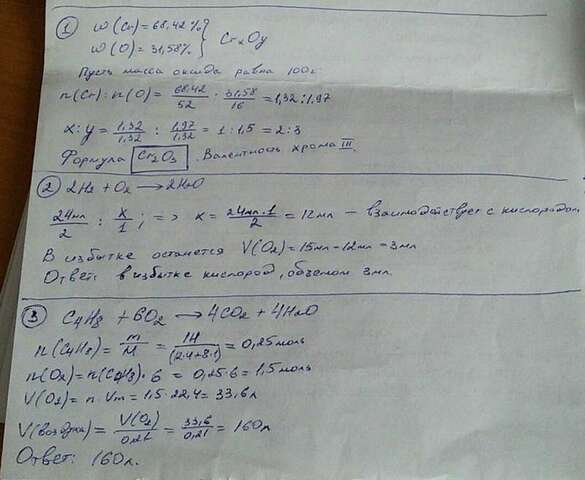 1 w(Cr) = 68,42%
w(O) = 31,58% } CrxOy
Пусть масса оксида равна 100г
n(Cr) : n(O) = 68,42/52 : 31,58/16 = 1,32 : 1,97
x : y = 1,32/1,32 : 1,97/1,32 = 1 : 1,5 = 2 : 3
Формула Cr2O3. Валентность хрома III.
2 2H2 + O2 → 2H2O
24мл/2 : x/1 ; => x = 24мл·1/2 = 12мл – взаимодействует с кислородом
В избытке останется V(O2) = 15мл – 12мл = 3мл
Ответ: в избытке кислород, объемом 3мл.
3 C4H8 + 6O2 → 4CO2 + 4H2O
n(C4H8) = m/M = 14/(12·4+8·1) = 0,25моль
n(O2) = n(C4H8)·6 = 0,25·6 = 1,5моль
V(O2) = n·Vm = 1,5·22,4 = 33,6л
V(воздуха) = V(O2)/0,21 = 33,6/0,21 = 160л
Ответ: 160л.